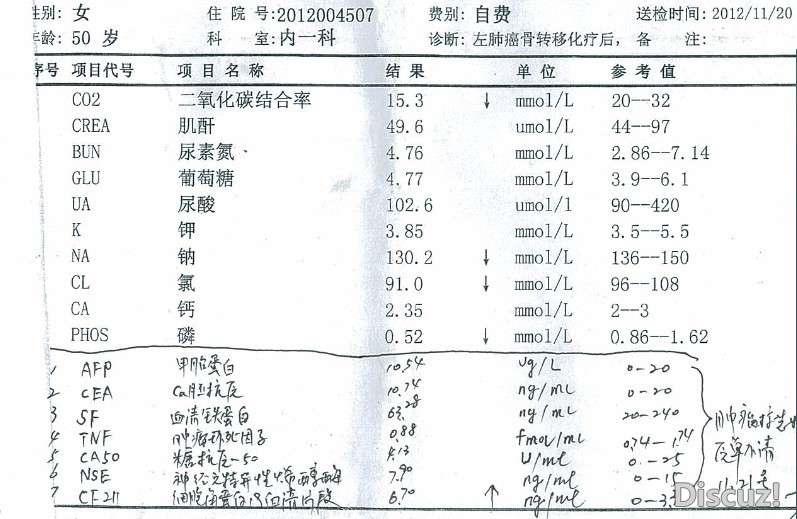 性别: 女 住 院 号:2012004507 费别: 自费 送检时间: 2012/11/20
年龄: 50 岁 科 室: 内一科 诊断: 左肺癌骨转移化疗后, 备 注:
序号 项目代号 项 目 名 称 结 果 单 位 参 考 值
CO2 二氧化碳结合率 15.3 ↓ mmol/L 20--32
CREA 肌酐 49.6 umol/L 44--97
BUN 尿素氮 4.76 mmol/L 2.86--7.14
GLU 葡萄糖 4.77 mmol/L 3.9--6.1
UA 尿酸 102.6 umol/l 90--420
K 钾 3.85 mmol/L 3.5--5.5
NA 钠 130.2 ↓ mmol/L 136--150
CL 氯 91.0 ↓ mmol/L 96--108
CA 钙 2.35 mmol/L 2--3
PHOS 磷 0.52 ↓ mmol/L 0.86--1.62
1 AFP 甲胎蛋白 10.54 ug/L 0-20
2 CEA 胚抗原 10.74 ng/mL 0-20
3 SF 血清铁蛋白 63.28 ng/mL 20-240
4 TNF 肿瘤坏死因子 0.88 fmol/mL 0.74-1.74
5 CA50 糖抗原-50 U/mL 0.-25
6 NSE 神经元特异性烯醇酶 7.90 ng/mL 0-15
7 CF211 细胞角蛋白19血清片段 6.70 ↑ ng/mL
肿瘤
原单不清
11.21号
Discuz!